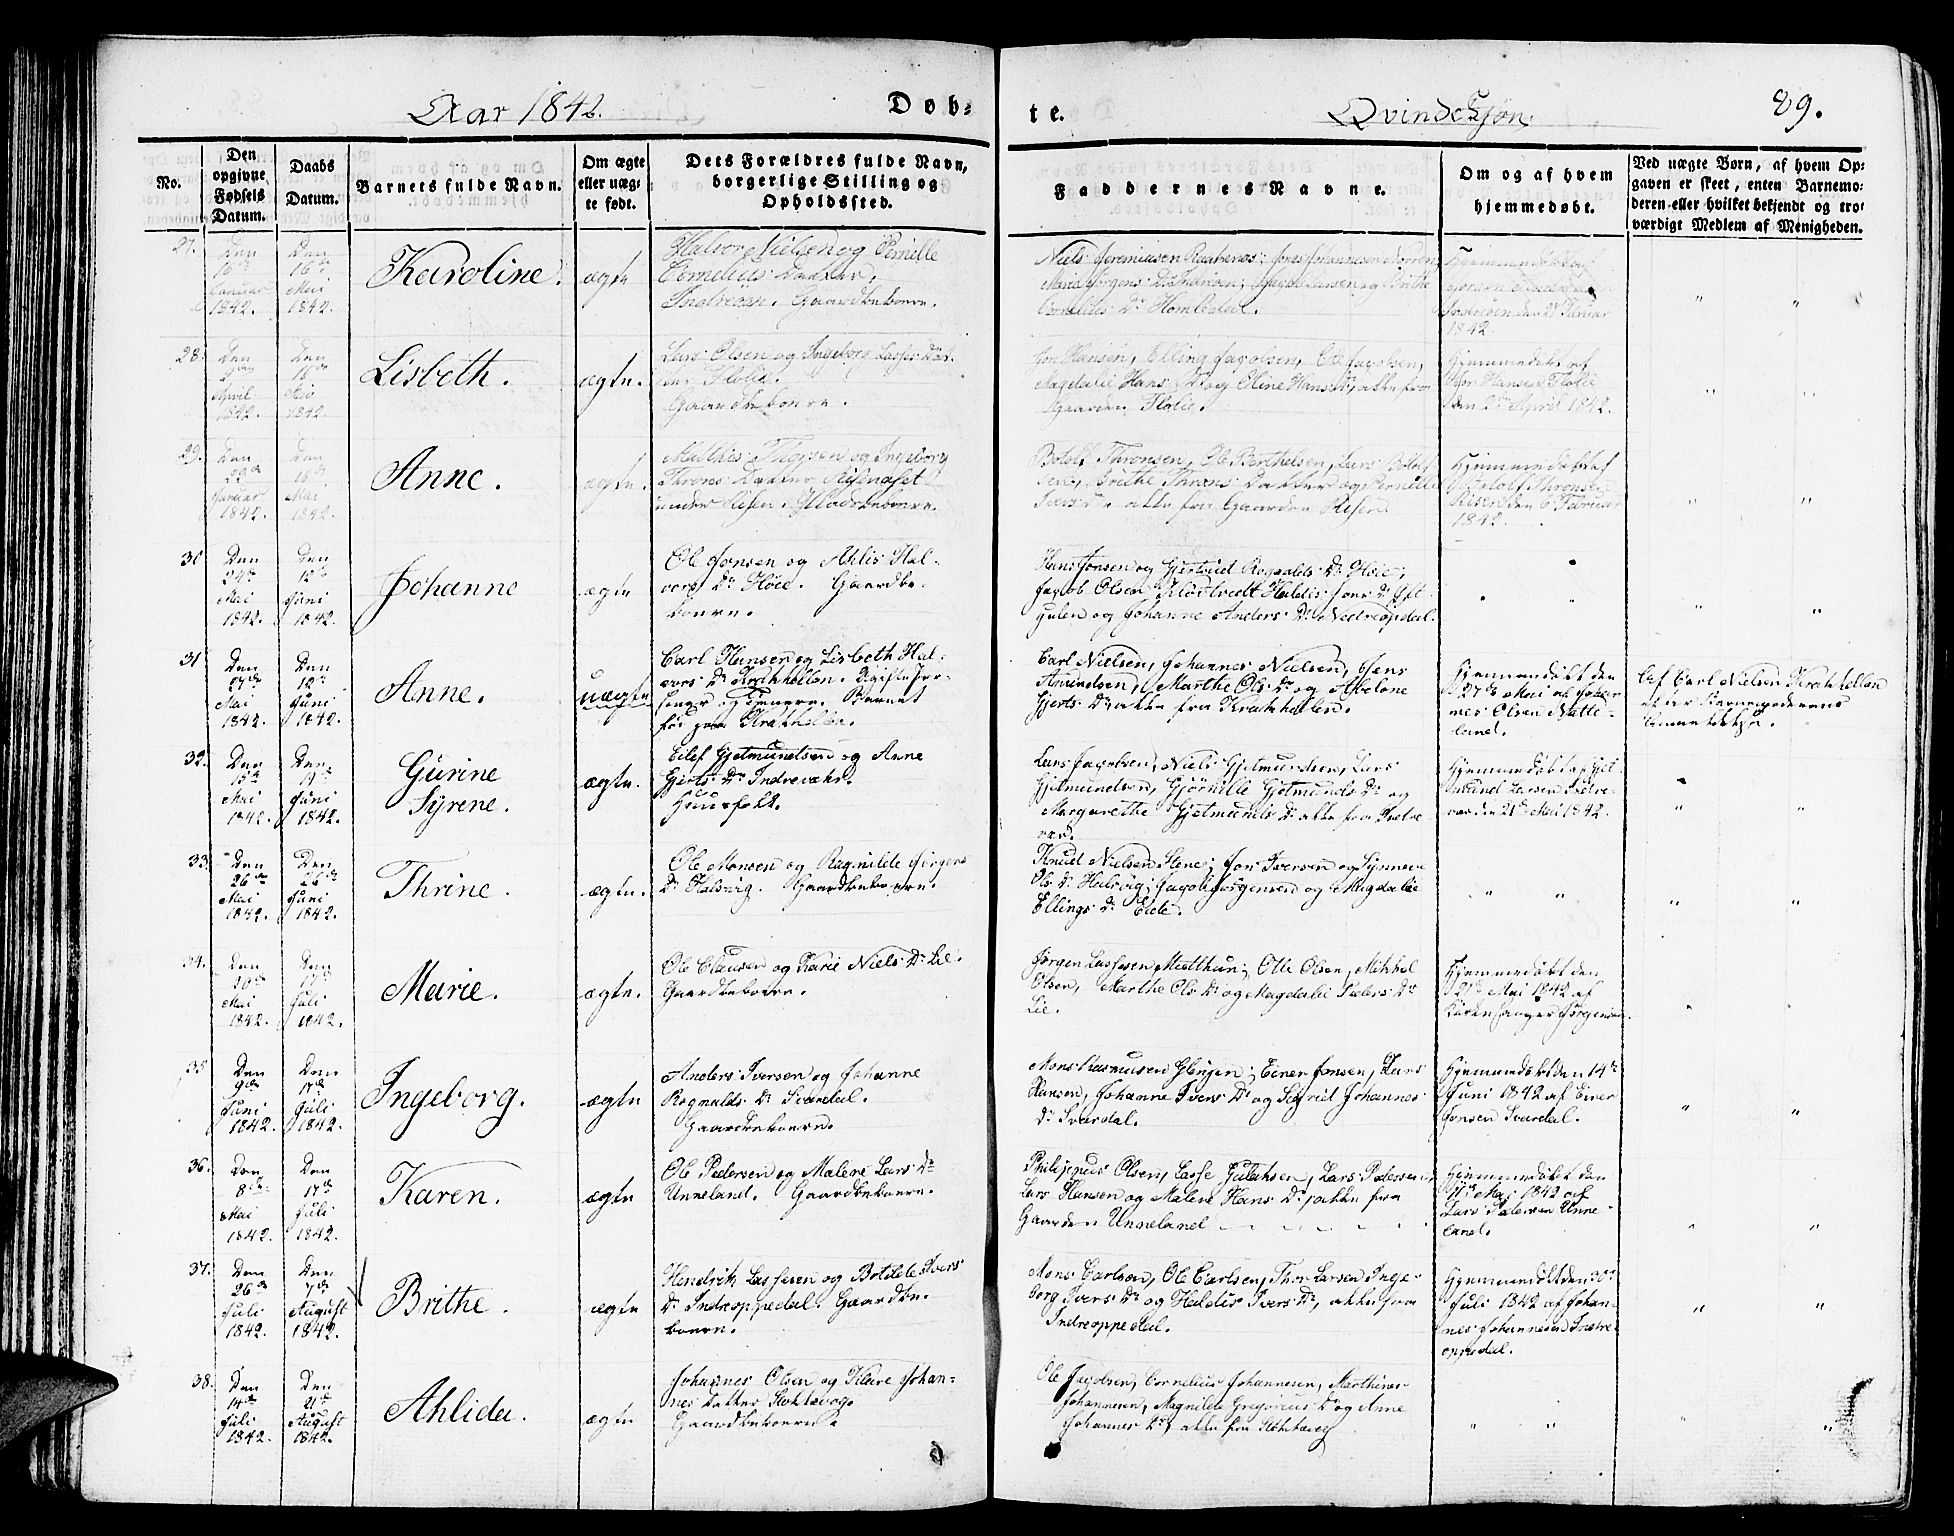 Aar 1842. Døb-
te. Qvindekjøn. 89.
No.
Den
opgivne
Fødsels
Datum.
Daabs
Datum.
Barnets fulde Navn.
Om ægte
eller uæg-
te født.
Dets Forældres fulde Navn,
borgerlige Stilling og
Opholdssted.
Faddernes Navne.
Om og af hvem
hjemmedøbt.
Ved uægte Børn, af hvem Op-
gaven er skeet, enten Barnemo-
deren eller hvilket bekjendt og tro-
værdigt Medlem af Menigheden.
27.
Den
16de
Januar
1842.
Den
16de
Mai
1842.
Karoline.
ægte
Halvor Nilsen og Pernille
Cornelius Datter,
Indreøen. Gaardbeboere.
Niels Jeremiasen
Maria Jørgens Dr Indreøen; Jacob Larsen og Brithe
Cornelius Dr
Hjemmedøbt af
Indreøen den
1842.
" "
28.
Den
April
1842.
Den
16de
Mai
1842.
Lisbeth.
ægte.
Lars Olsen og Ingeborg Lasses Dat-
ter Flolie.
Gaardbeboere.
Jon Hansen, Elling Jacobsen, Ole Jacobsen,
Magdalie Hans Dr og Eline Hans Dr, alle fra
Gaarden Flolie.
Hjemmedøbt af
Jon Hansen Flolie
den 2den April 1842.
" "
29.
Den
Januar
1842.
Den
16de
Mai
1842.
Anne.
ægte.
Mathis og Ingeborg
Throns Datter Risenæset
under Risen. Pladsbeboere.
Botolf Thronsen, Ole Berthelsen, Lars Botolf-
sen, Brithe Throns Datter og Pernille
Ivers Dr alle fra Gaarden Risen.
Hjemmedøbt af
Botolf Thronsen
Risen den 6 Februar
1842.
" "
30
Den
24de
Mai
1842.
Den
12te
Juni
1842.
Johanne
ægte
Ole Jonsen og Ahlis Hal-
vors Dr Høie. Gaardbe-
boere.
Hans Jonsen og Gjertrud Rognalds Dr Høie,
Jacob Olsen Haldis Jons Dr
og Johanne Anders Dr Nedreopdal.
" "
31
Den
27de
Mai
1842.
Den
12te
Juni
1842.
Anne.
uægte
Carl Hansen og Lisbeth Hal-
vors Dr Krakhellen. Ugifte Per-
soner og Tjenere. Barnet
født paa Krakhellen.
Carl Nielsen, Johannes Nielsen, Jens
Amundsen, Marthe Ols Dr og Abelone
Gjerts Dr alle fra Krakhellen.
Hjemmedøbt den
27de Mai af Johan-
nes Olsen Nætte-
land.
Af Carl Nielsen Krakhellen
efter Barnemoderens
32.
Den
15de
Mai
1842.
Den
19de
Juni
1842.
Gurine
Syrene.
ægte.
Eilef Gjetmundsen og Anne
Gjerts Dr Indrevær.
Huusfolk.
Lars Jacobsen, Niels Gjetmundsen, Lars
Gjetmundsen, Gjørnille Gjetmunds Dr og
Margarethe Gjetmunds Dr alle fra Indre-
vær.
Hjemmedøbt af Gjet-
mund Larsen Indre-
vær den 21de Mai 1842.
" "
33.
Den
26de
Mai
1842.
Den
26de
Juni
1842.
Thrine.
ægte.
Ole Monsen og Ragnilde Jørgens
Dr Halsvig. Gaardbeboere.
Knud Nielsen Stene; Jon Iversen og Synneve
Ols Dr Halsvig; Jacob Jørgensen og Magdalie
Ellings Dr Eide.
" "
34.
Den
Mai
1842.
Den
17de
Juli
1842.
Marie.
ægte.
Ole Clausen og Karie Niels Dr Lie.
Gaardbeboere.
Jørgen Lassesen Mjelthun; Olle Olsen, Mikkel
Olsen, Marthe Ols Dr og Magdalie Peders Dr
Lie.
Hjemmedøbt den
21de Mai 1842 af
" "
35
Den
9de
Juni
1842.
Den
17de
Juli
1842.
Ingeborg.
ægte
Anders Iversen og Johanne
Rognalds Dr Svardal.
Gaardbeboere.
Mons Rasmusen Glenjen; Einer Jonsen, Lars
Hansen, Johanne Ivers Dr og Sigrid Johannes
Dr Svardal.
Hjemmedøbt den 14de
Juni 1842 af Einer
Jonsen Svardal.
" "
36.
Den
8de
Mai
1842.
Den
17de
Juli
1842.
Karen.
ægte
Ole Pedersen og Malene Lars Dr
Unneland. Gaardbeboere.
Olsen, Lasse Gulaksen, Lars Pedersen,
Lars Hansen og Malene Hans Dr, alle fra
Gaarden Unneland
Hjemmedøbt den
11te Mai 1842 af
Lars Pedersen Unne-
land.
" "
37.
Den
26de
Juli
1842.
Den
7de
August
1842.
Brithe.
ægte
Hendrik Lassesen og Botilde Ivers
Dr Indreoppedal. Gaardbe-
boere.
Mons Carlsen, Ole Carlsen, Thor Larsen Inge-
borg Ivers Dr og Haldis Ivers Dr, alle fra
Indreoppedal.
Hjemmedøbt den 30te
Juli 1842 af Johan-
nes Johannesen Indre-
oppedal.
" "
38.
Den
14de
Juli
1842.
Den
21de
August
1842.
Ahlida.
ægte
Johannes Olsen og Johan-
nes Datter
Gaardbeboere.
Ole Jacobsen, Cornelius Johannesen, Marthinus
Johannesen, Magnilde Gregorius Dr og Anne
Johannes Dr, alle fra
" "